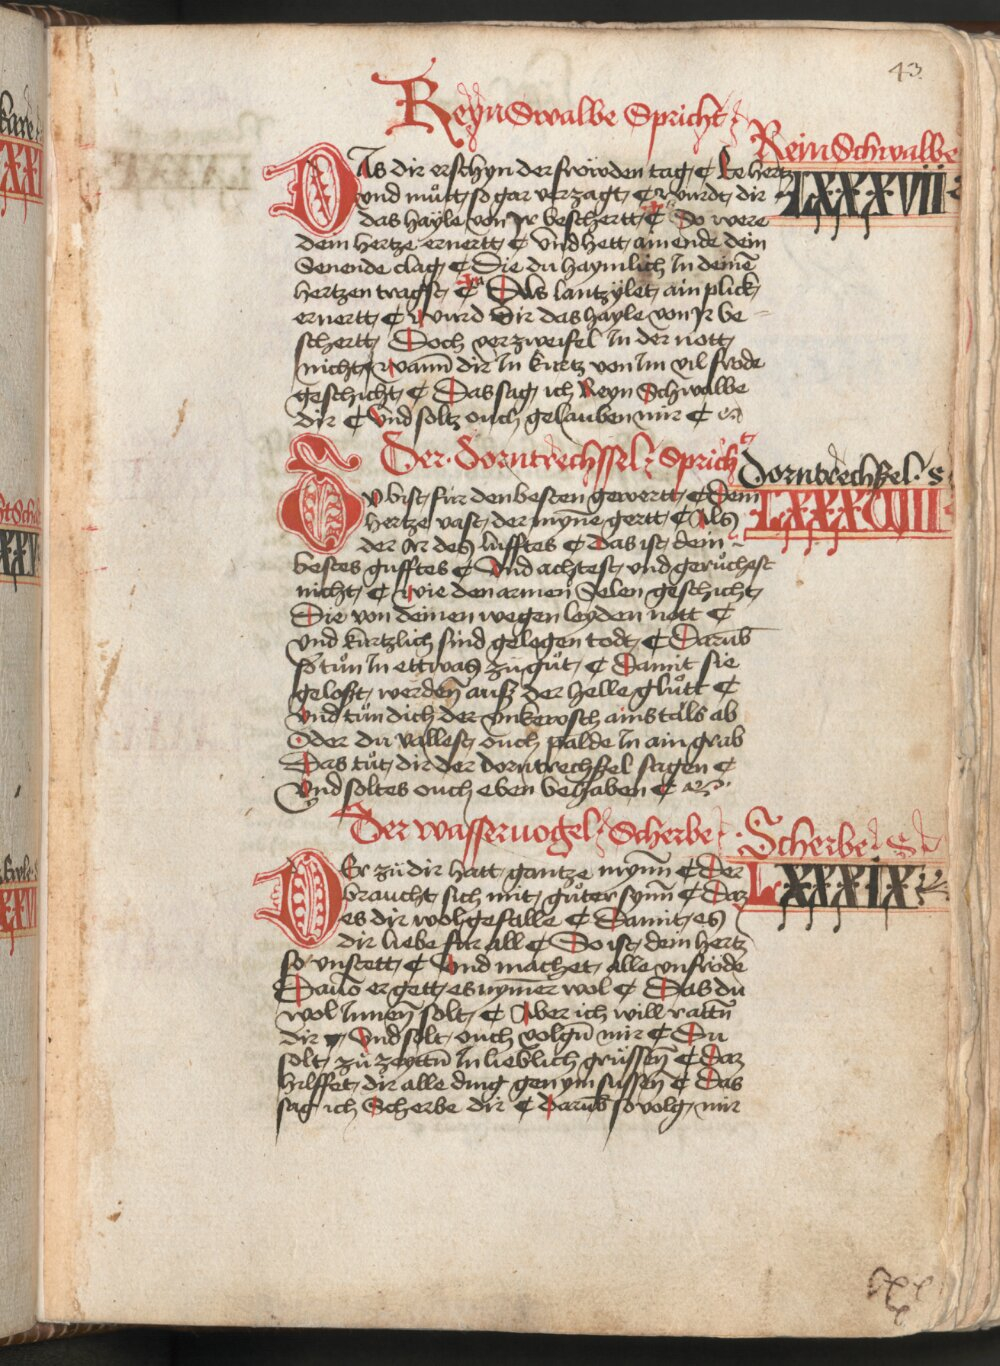 43.
Reyn Swalbe Spricht
Rein Schwalbe
LXXXVII
DAs dir erschyn der fröwden tag ¶ Ee hertz
vnd můt so gar verzagt ¶ wurdt dir
das hayle von Jr beschertt ¶ So were
dein hertze ernertt ¶ Vnd hett am ende dein
Senende clag ¶ Die du haymlich In deinē
hertzen tragst ¶ Als lantzylet ain plick
ernertt ¶ wurd dir das hayle von Jr be
schertt Doch verzweifel In der nott
nicht wann̄ dir In kurtz von Im vil frode
geschicht ¶ Das sag ich Reyn Schwalbe
dir ¶ Vnd soltz ouch gelauben mir ¶
Der Dorntrechssel Sprich
Dorntrechssel s
LXXXVIII
DV bist für den besten gewertt ¶ Dem
hertze vast der mynne gertt ¶ Als
der Ar des lufftes ¶ Das ist dem
bestes gufftes ¶ Vnd achtest vnd gerůchest
nicht ¶ wie den armen Selen geschicht
Die von deinen wegen leyden nott ¶
Vnd kurtzlich sind gelegen todt ¶ Darub̄
So tůn In ettwas zu gůt ¶ Damit sie
geloßt werden̄ auß der helle glůtt ¶
Vnd tůn dich der vnkewsch ains tails ab
Oder du vallest ouch palde In ain grab
Das tůt dir der dorntrechssel sagen ¶
Vnd soltes ouch eben behaben ¶
Der wasseruogel Scherbe
Scherbe S
LXXXIX
DEr zu dir hatt gantze mynn̄ ¶ Der
braucht sich mit gůter synn̄ ¶ Daz
es dir wolgefalle ¶ Damit es
dir liebe für all ¶ So ist dem hertz
so vnstett ¶ Vnd machet alle vnfröde
Dauō er gett es nymer wol ¶ Das du
wol Innen̄ solt ¶ Aber ich will rattn̄
dir Vnd solt ouch volgn̄ mir ¶ Du
solt zu zeyttn̄ In lieblich grüssen̄ ¶ Daz
hilffet dir alle ding gen ym süssen̄ ¶ Das
sag ich Scherbe dir ¶ Darub̄ so volg mir